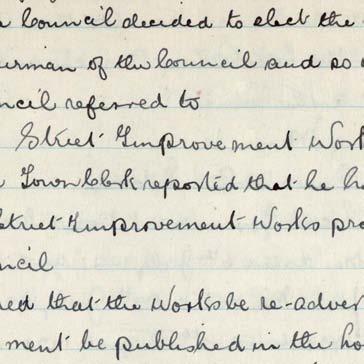 Council decided to elect the
irman of the Council and so
ncil referred to
Street Improvement Work
Town Clerk reported that he ha
Street Improvement Works pro
ncil
red that the Works be re-adver
ment be published in the